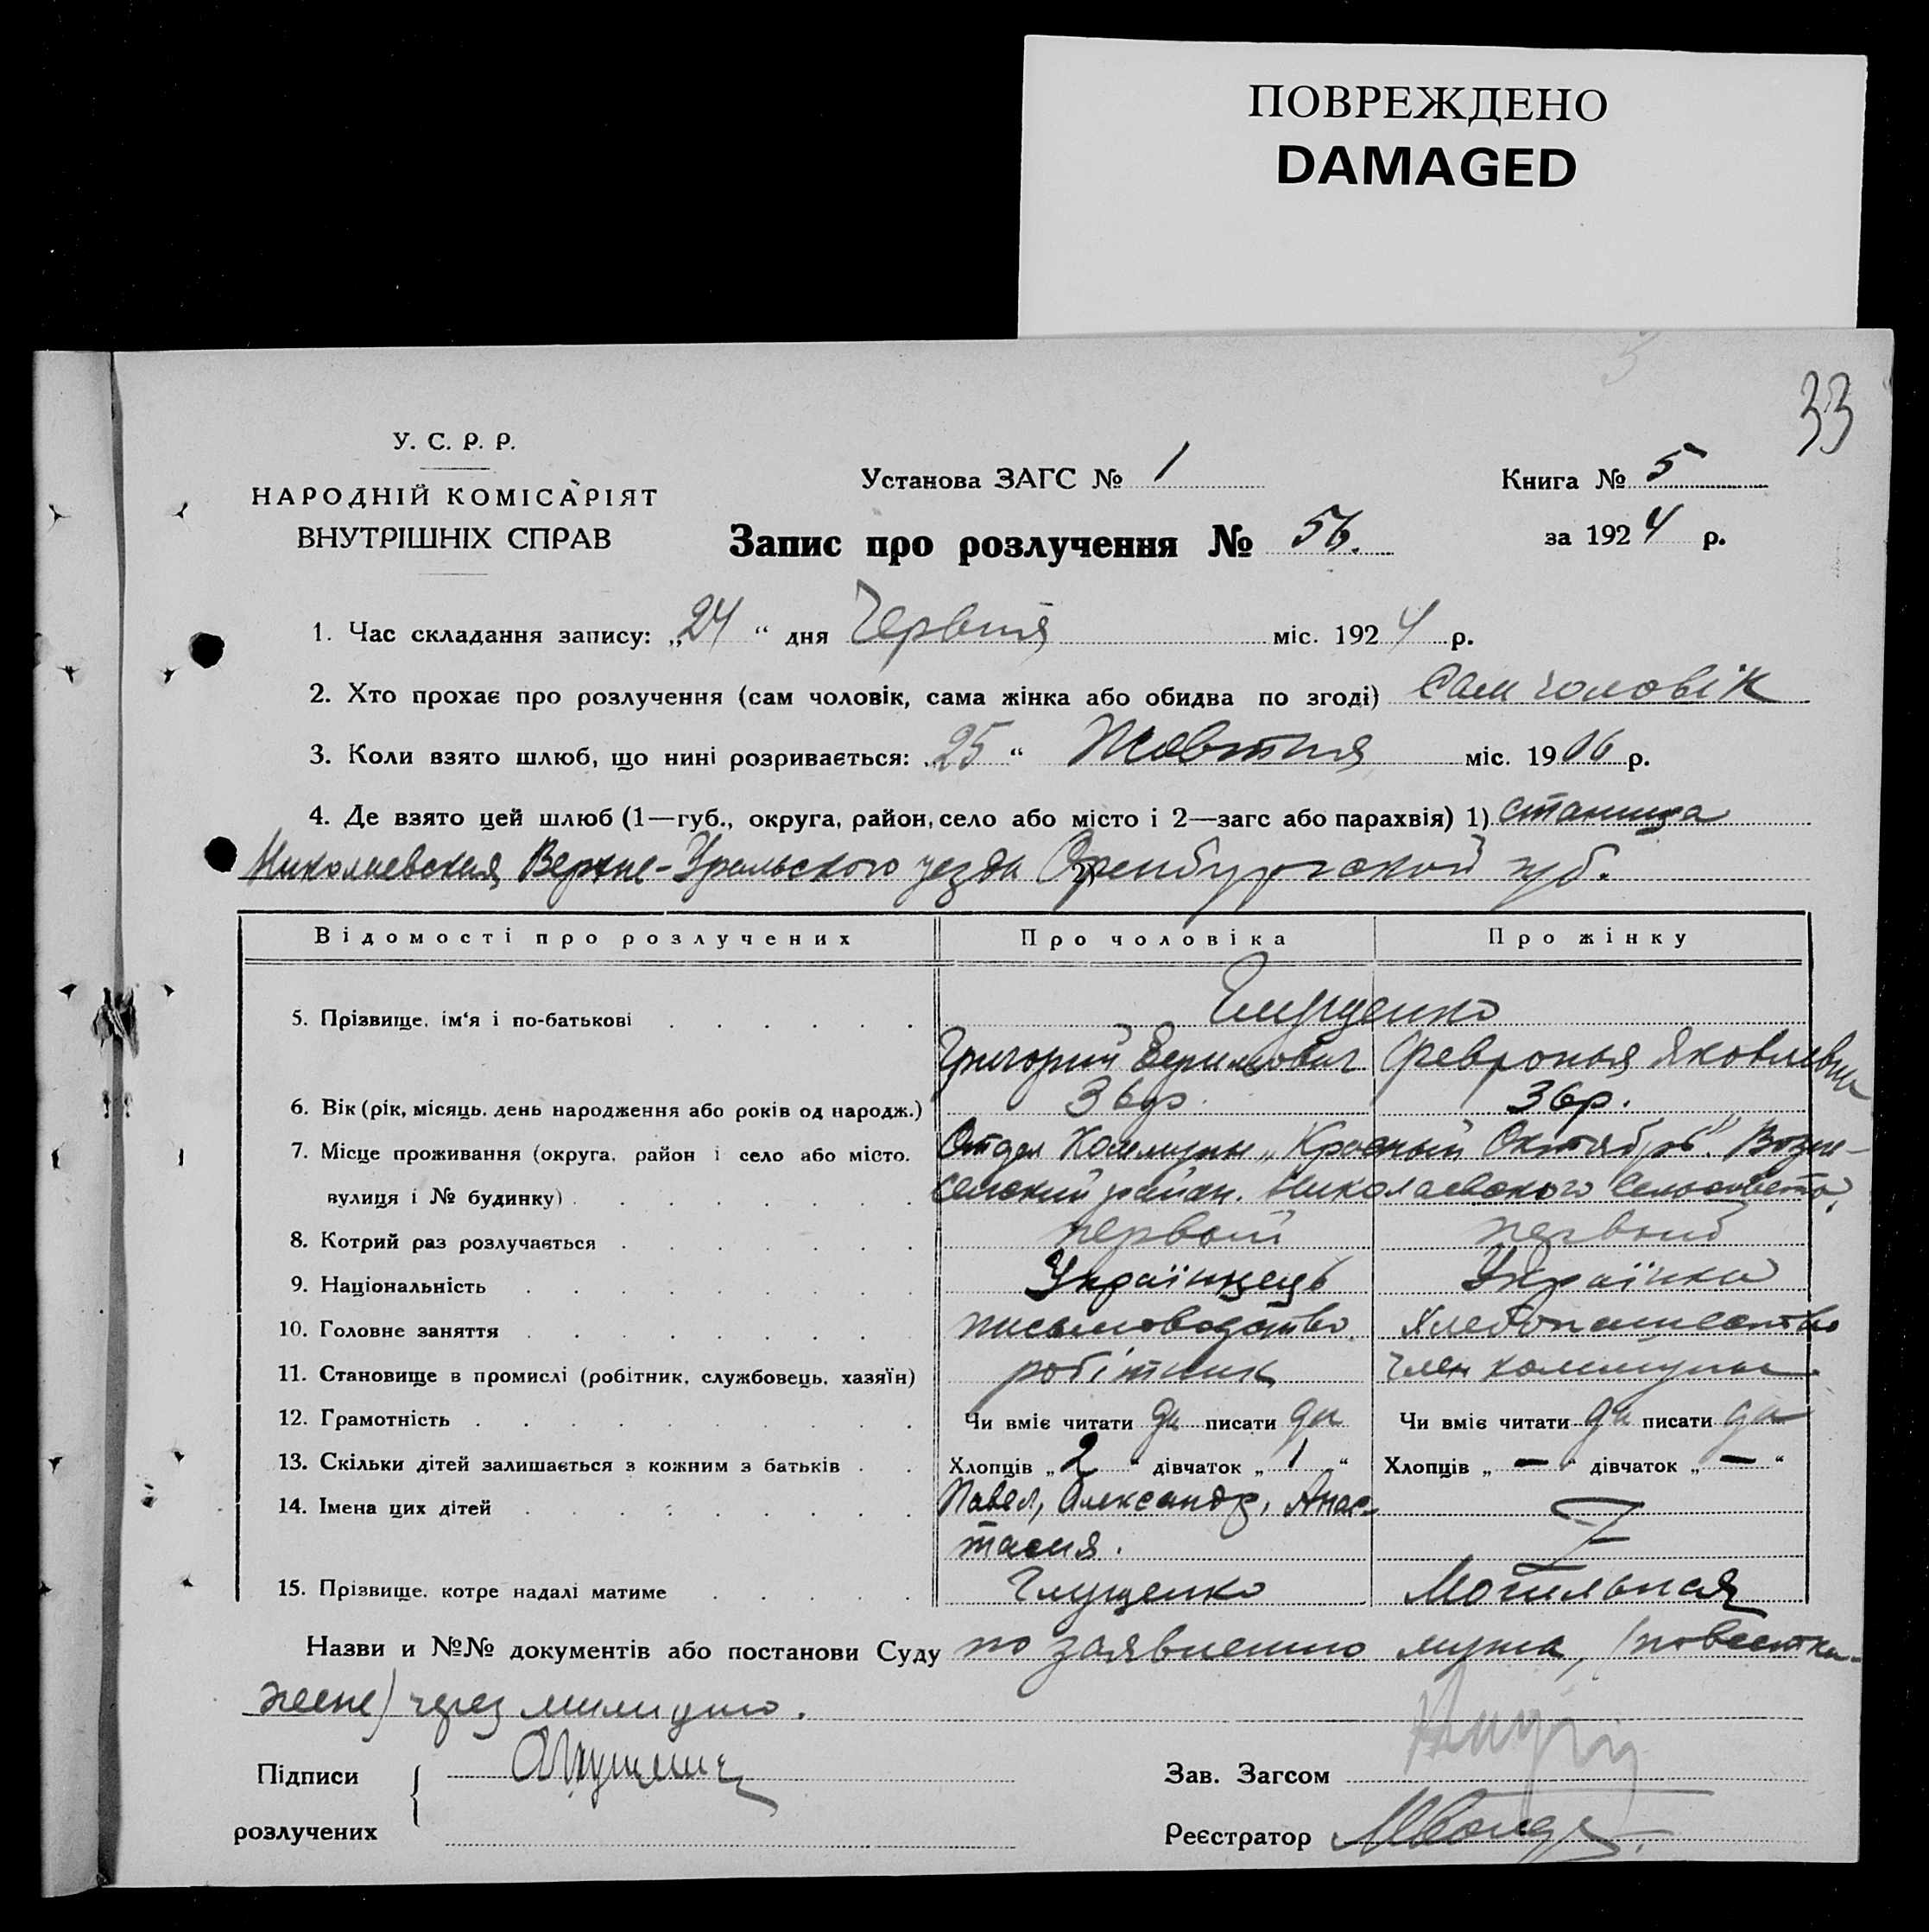 ПОВРЕЖДЕНО
DAMAGED
33
У. С. Р. Р.
НАРОДНІЙ КОМІСАРІЯТ
ВНУТРІШНІХ СПРАВ
Установа ЗАГС № 1
Книга № 5
Запис про розлучення № 56.
за 1924 р.
1. Час складання запису: „24“ дня Червня міс. 1924 р.
2. Хто прохає про розлучення (сам чоловік, сама жінка або обидва по згоді) Сам чоловік
3. Коли взято шлюб, що нині розривається: „25“ Жовтня міс. 1906 р.
4. Де взято цей шлюб (1—губ., округа, район, село або місто і 2—загс або парахвія) 1) станица
Николаевская Верхне-Уральского уезда Оренбургской губ.
Відомості про розлучених Про чоловіка Про жінку
5. Прізвище, ім‘я і по-батькові Глущенко
Григорий Феврония Яковлевна
6. Вік (рік, місяць, день народження або років од народж.) 36 р. 36 р.
7. Місце проживання (округа, район і село або місто, Отдел Коммуны „Красный Октябрь“. Возне-
вулиця і № будинку) сенский район. Николаевского Сельсовета,
8. Котрий раз розлучається первый первый
9. Національність Українцець Українка
10. Головне заняття письмоводство хлебопашество
11. Становище в промислі (робітник, службовець, хазяїн) робітник член коммуны
12. Грамотність Чи вміє читати да писати да Чи вміє читати да писати да
13. Скільки дітей залишається з кожним з батьків Хлопців „2“ дівчаток „1“ Хлопців „—“ дівчаток „—“
14. Імена цих дітей Павел, Александр, Анас-
тасия.
15. Прізвище, котре надалі матиме Глущенко Могильная
Назви и №№ документів або постанови Суду по заявлению мужа, (повестка
жене) через милицию.
Підписи
розлучених
Зав. Загсом
Реєстратор